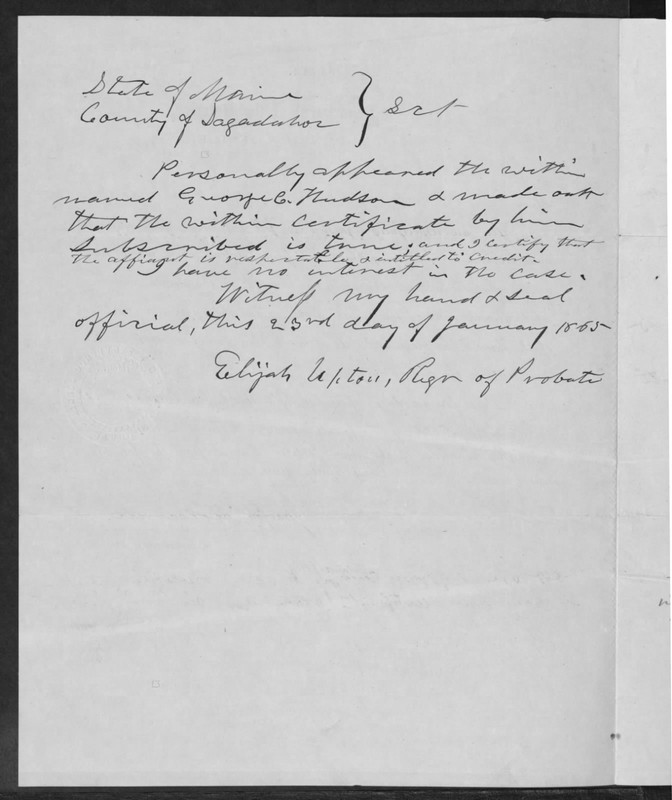 State of Maine
County of Sagadahoc } Sct
Personally appeared the within
named George C. Hudson & made oath
that the within certificate by him
subscribed is true; and I certify that
the affiant is respectable & intitled to credit &
I have no interest in the case.
Witness my hand & seal
official, this 23rd day of January 1865
Elijah Upton, Regr of Probate